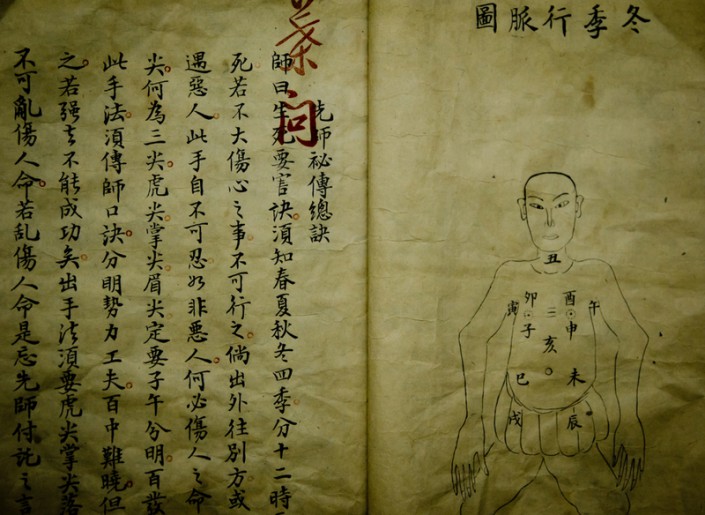 冬季行脈圖
丑
酉
卯
午
寅
申
子
亥
未
巳
辰
戌
葉問
先師祕傳總訣
師曰生死要害訣須知春夏秋冬四季分十二時
死若不大傷心之事不可行之倘出外往別方或
遇惡人此手自不可忍如非惡人何必傷人之命
尖何為三尖虎尖掌尖眉尖定要子午分明百發
此手法須傳師口訣分明勢力工夫百中難曉但
之若强去不能成功矣出手法須要虎尖掌尖落
不可亂傷人命若乱傷人命是忘先師付託之言